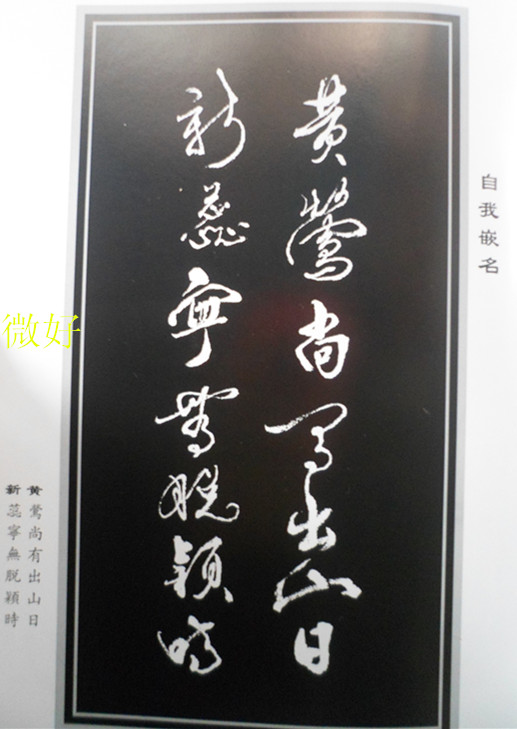 自我嵌名
黄鶯尚有出山日
新蕊寧無脱穎時
黄鶯尚有出山日
新蕊寧無脫穎時
微好